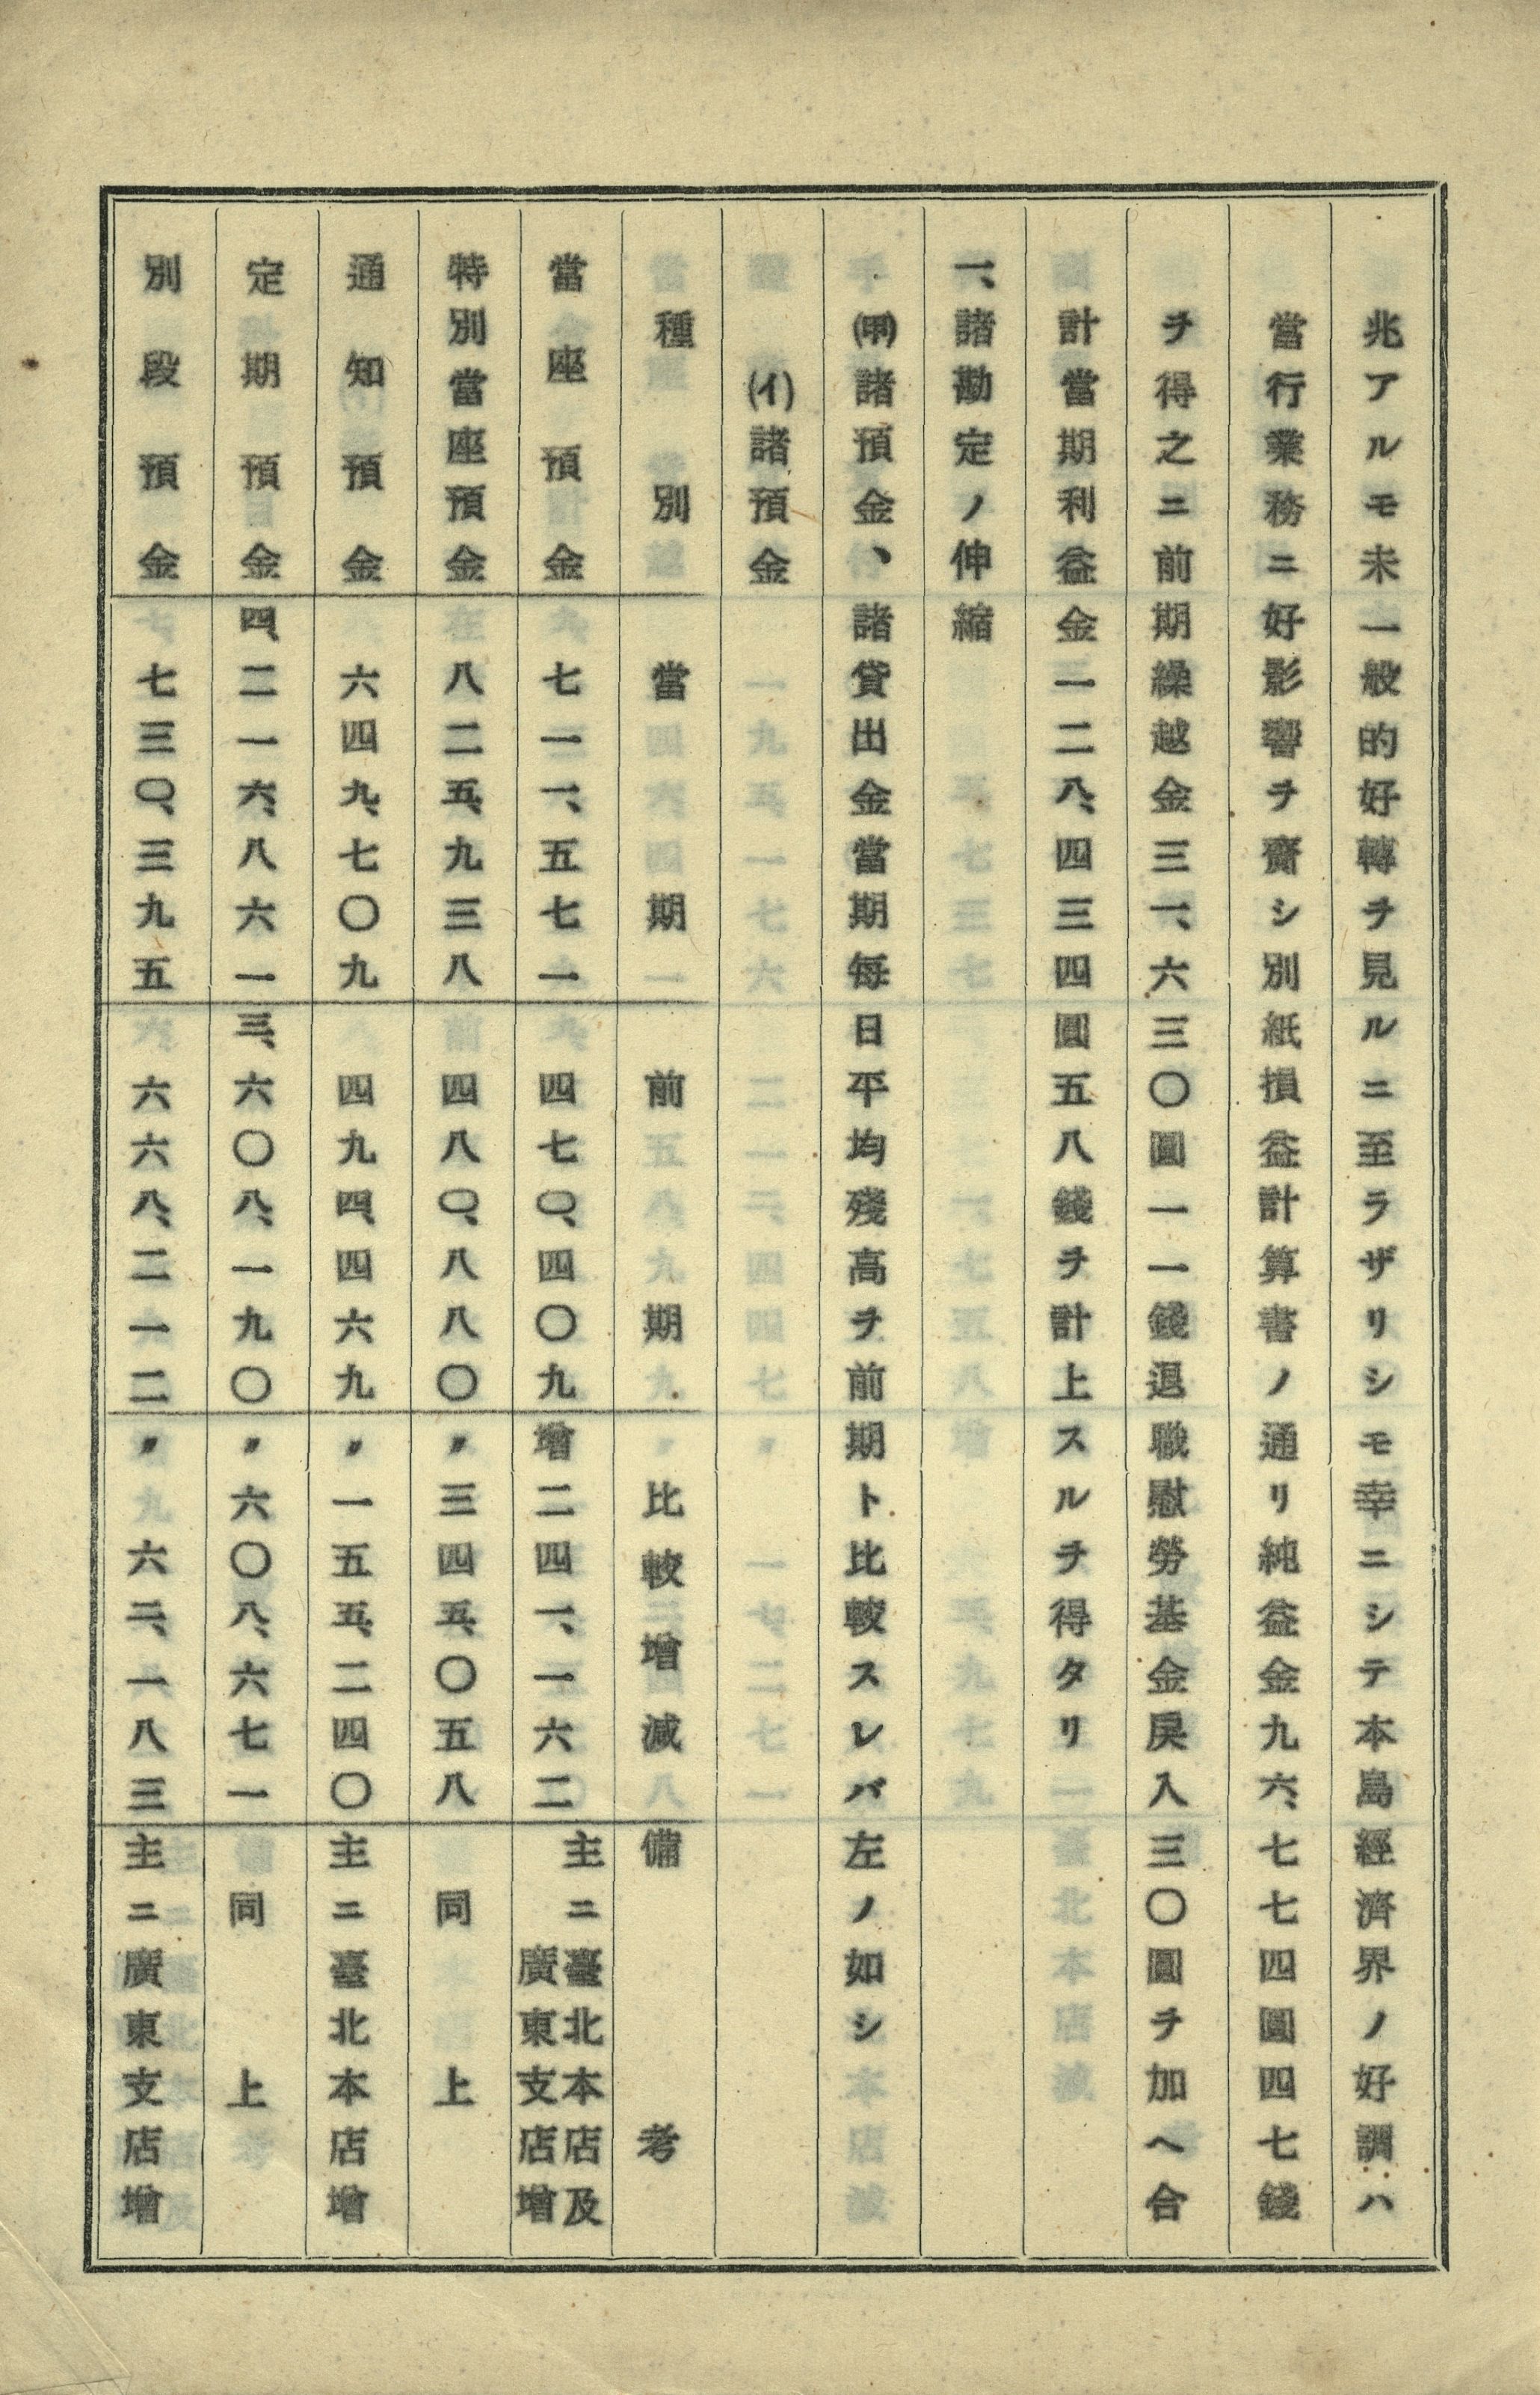 兆アルモ未一般的好轉ヲ見ルニ至ラザリシモ幸ニシテ本島經濟界ノ好調ハ
當行業務ニ好影響ヲ齎シ別紙損益計算書ノ通リ純益金九六、七七四圓四七錢
ヲ得之ニ前期繰越金三一、六三〇圓一一錢退職慰勞基金戾入三〇圓ヲ加ヘ合
計當期利益金一二八、四三四圓五八錢ヲ計上スルヲ得タリ
一、諸勘定ノ伸縮
(甲)諸預金、諸貸出金當期每日平均殘高ヲ前期ト比較スレバ左ノ如シ
(イ)諸預金
種別 當期 前期 比較增減 備考
當座預金 七一一、五七一 四七〇、四〇九 增二四一、一六二 主ニ臺北本店及廣東支店增
特別當座預金 八二五、九三八 四八〇、八八〇 〃三四五、〇五八 同上
通知預金 六四九、七〇九 四九四、四六九 〃一五五、二四〇 主ニ臺北本店增
定期預金 四、二一六、八六一 三、六〇八、一九〇 〃六〇八、六七一 同上
別段預金 七三〇、三九五 六六八、二一二 〃六二、一八三 主ニ廣東支店增